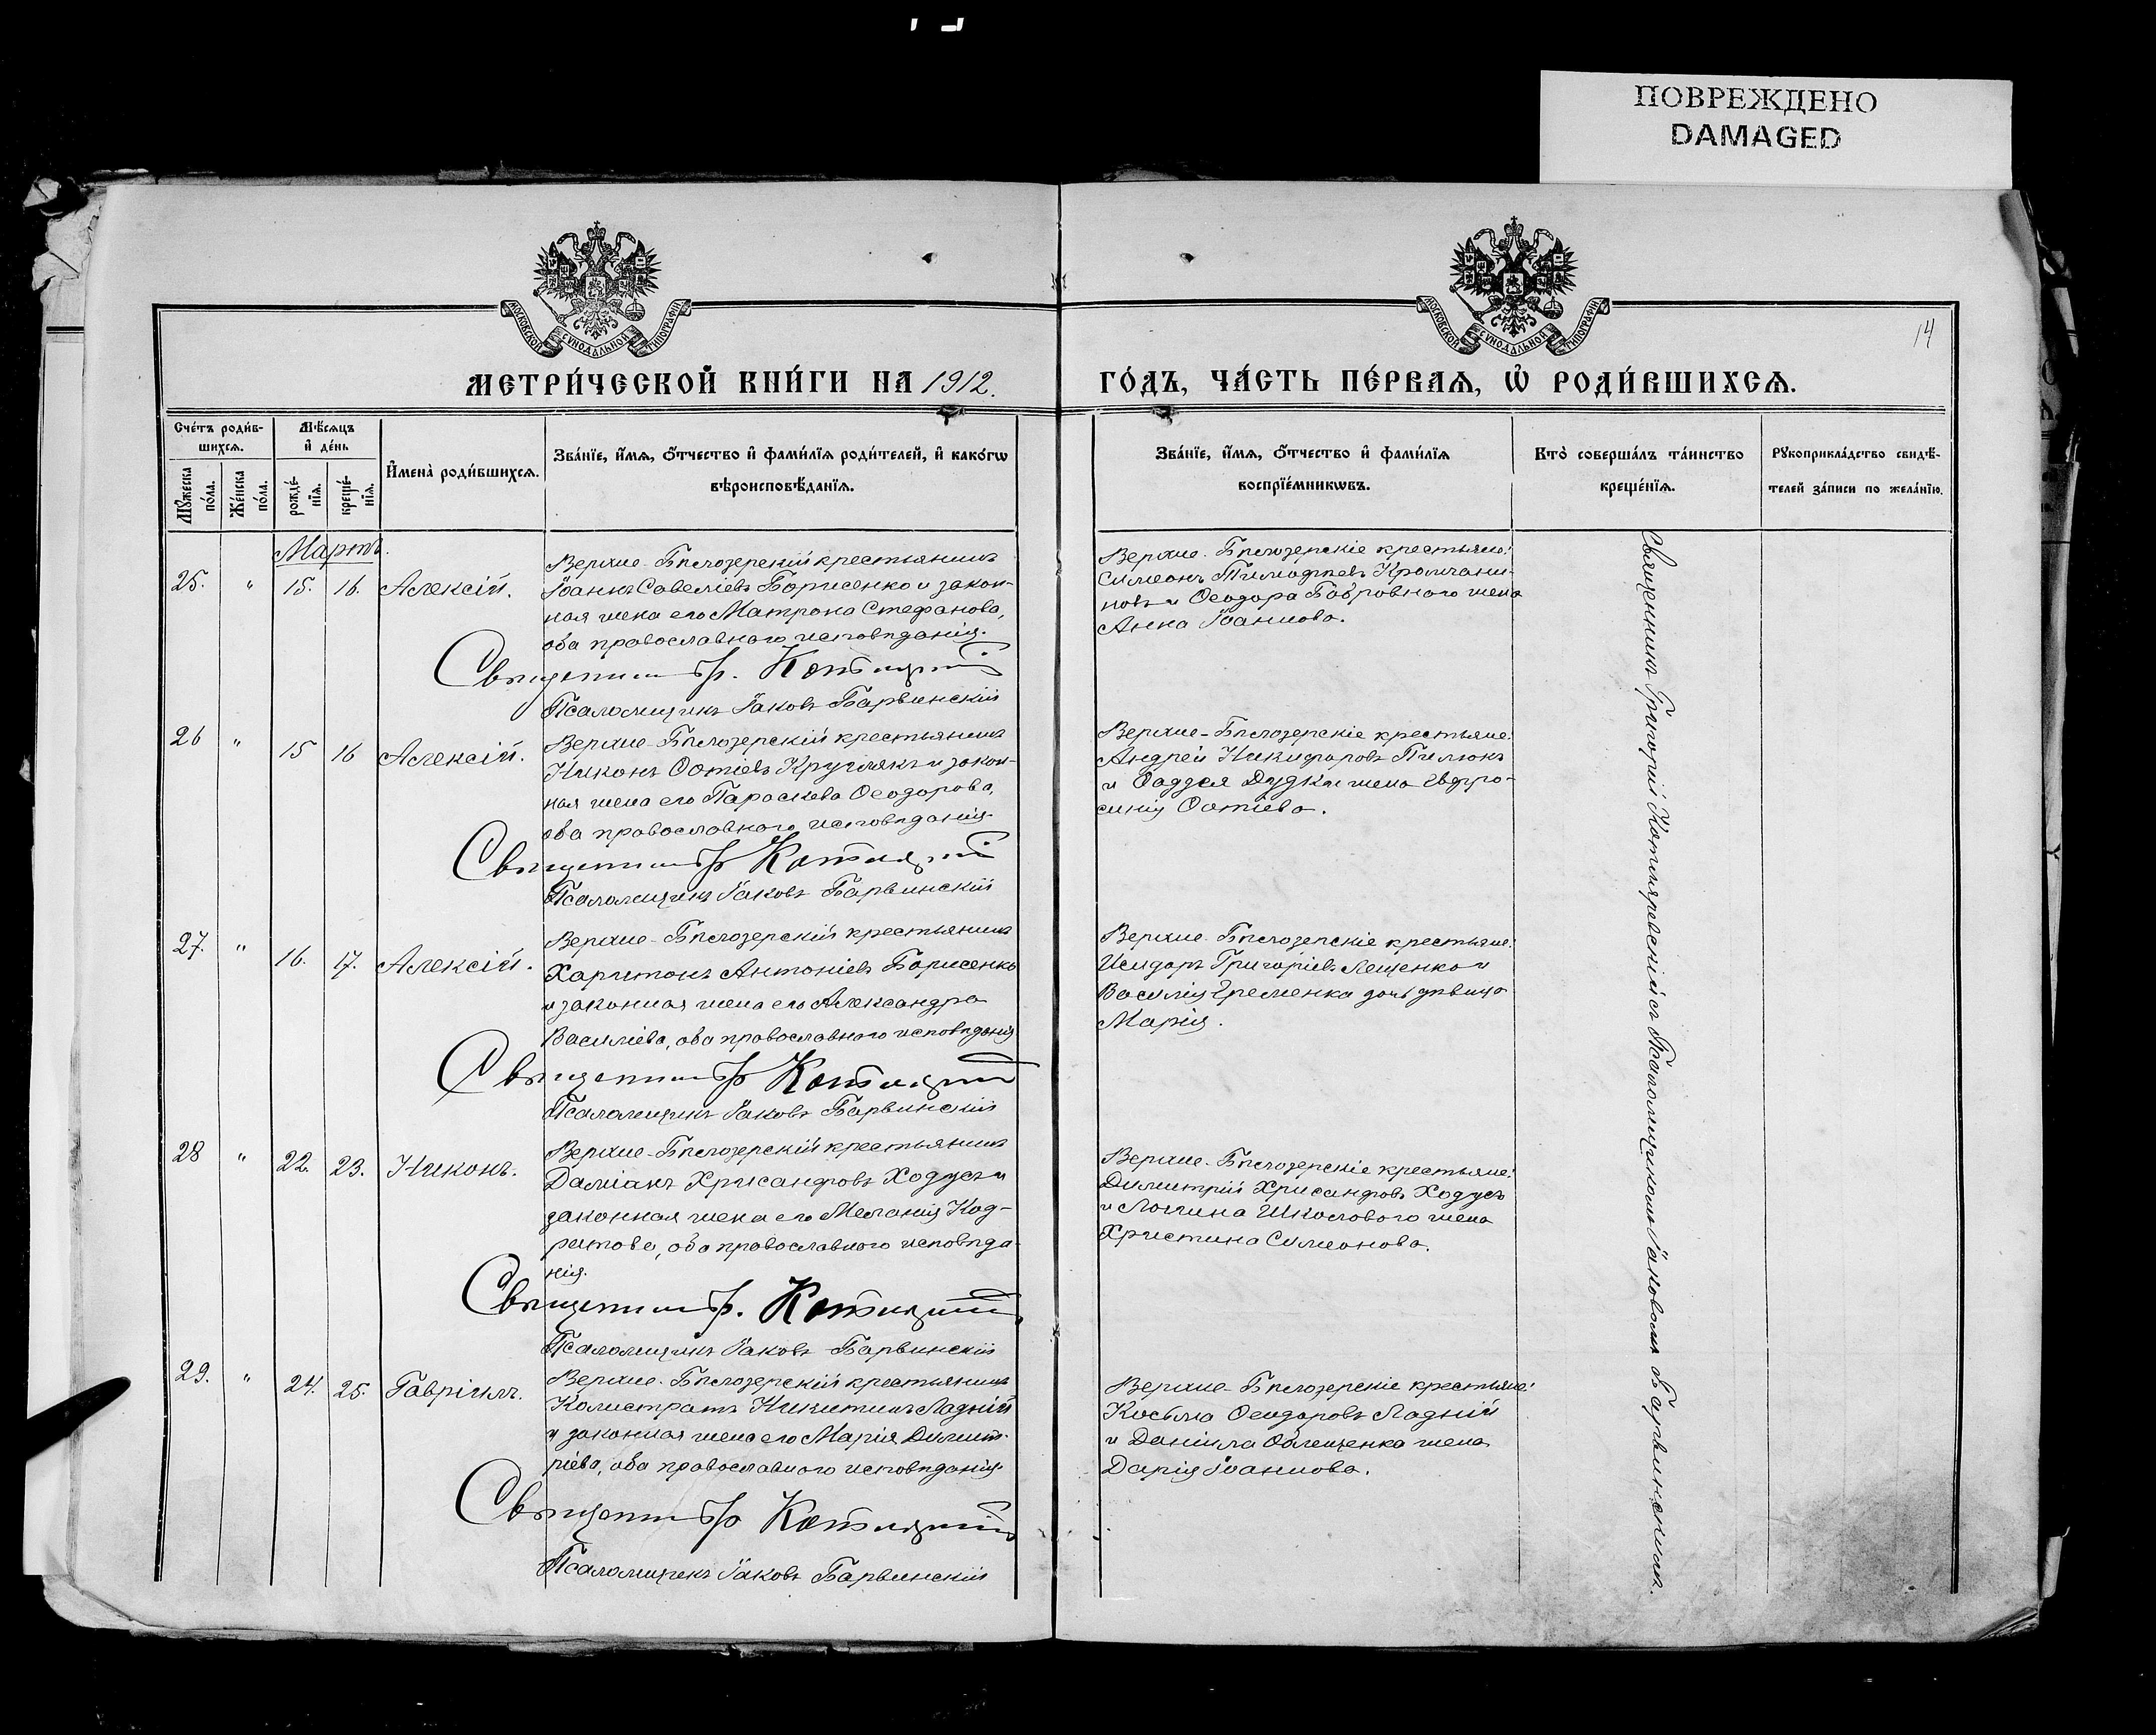 ПОВРЕЖДЕНО
DAMAGED
МОСКОВСКОЙ СѴНОДАЛЬНОЙ ТИПОГРАФІИ
МОСКОВСКОЙ СѴНОДАЛЬНОЙ ТИПОГРАФІИ
14
МЕТРИ́ЧЕСКОЙ КНИ́ГИ НА 1912.
ГО́ДЪ, ЧА́СТЬ ПЕ́РВАѦ, Ѡ҆ РОДИ́ВШИХСѦ.
Сче́тъ роди́в-
шихсѧ.
Мѣ́сѧцъ
и҆ де́нь
Мꙋ́жеска по́ла.
Же́нска по́ла.
рожде́-нїѧ.
креще́-нїѧ.
И҆мена̀ роди́вшихсѧ.
Зва́нїе, и҆́мѧ, ѻ҆́тчество и҆ фами́лїѧ роди́телей, и҆ како́гѡ
вѣроисповѣ́данїѧ.
Зва́нїе, и҆́мѧ, ѻ҆́тчество и҆ фами́лїѧ
воспрїе́мникѡвъ.
Кто̀ соверша́лъ та́инство
креще́нїѧ.
Рꙋкоприкла́дство свидѣ́-
телей за́писи по жела́нїю.
Мартъ.
25. " 15. 16. Алексій.
Верхне-Бѣлозерскій крестьянинъ
Іоаннъ Савеліевъ Борисенко и закон-
ная жена его Матрона Стефанова,
оба православнаго исповѣданія.
Священникъ Гр.
Псаломщикъ Іаковъ Барвинскій
Верхне-Бѣлозерскіе крестьяне:
Симеонъ Тимофеевъ
и Ѳеодора жена
Анна Іоаннова.
26 " 15 16 Алексій.
Верхне-Бѣлозерскій крестьянинъ
Никонъ Фотіевъ Круглякъ и закон-
ная жена его Параскева Ѳеодорова,
оба православнаго исповѣданія.
Священникъ Гр
Псаломщикъ Іаковъ Барвинскій
Верхне-Бѣлозерскіе крестьяне:
Андрей Никифоровъ Пилюкъ
и Ѳаддея Дудки жена Евфро-
синія Фотіева.
27. " 16. 17. Алексій.
Верхне-Бѣлозерскій крестьянинъ
Харитонъ Антоніевъ Борисенко
и законная жена его Александра
Василіева, оба православнаго исповѣданія
Священникъ Гр
Псаломщикъ Іаковъ Барвинскій
Верхне-Бѣлозерскіе крестьяне:
Исидоръ Григоріевъ Лещенко и
Василія Еременка дочь дѣвица
Марія.
28 " 22. 23. Никонъ.
Верхне-Бѣлозерскій крестьянинъ
Даміанъ Хрисанфовъ Ходусъ и
законная жена его Меланія Код-
ратова, оба православнаго исповѣда-
нія.
Священникъ Гр.
Псаломщикъ Іаковъ Барвинскій
Верхне-Бѣлозерскіе крестьяне:
Димитрій Хрисанфовъ Ходусъ
и Логина Школового жена
Христина Симеонова.
29. " 24. 25. Гавріилъ.
Верхне-Бѣлозерскій крестьянинъ
Калистратъ Никитинъ Ладній
и законная жена его Марія Димит-
ріева, оба православнаго исповѣданія.
Священникъ Гр
Псаломщикъ Іаковъ Барвинскій
Верхне-Бѣлозерскіе крестьяне:
Косьма Ѳеодоровъ Ладній
и Даніила жена
Дарія Іоаннова.
Священникъ Григорій Котляревскій съ Псаломщикомъ Іаковомъ Барвинскимъ.